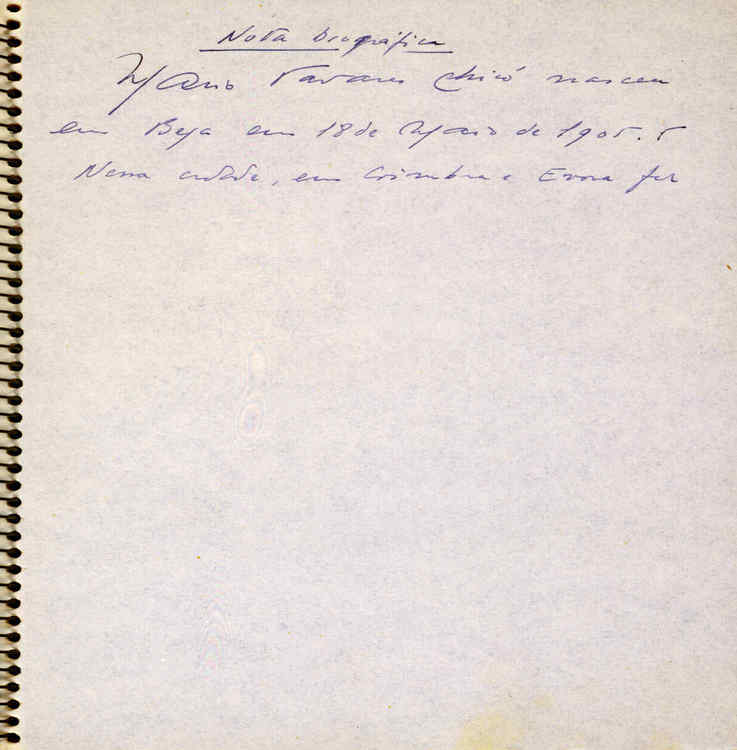 Nota biográfica
Mario Tavares Chicó nasceu
em Beja em 18 de Maio de 1905. 5
Nessa cidade, em Coimbra e Evora fez